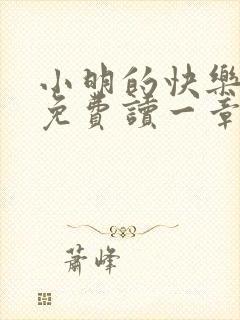 小明的快樂
免費讀一章
蕭峰